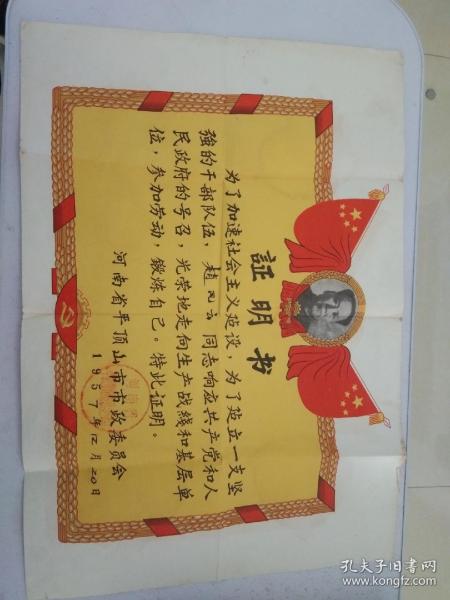 証明书
为了加速社会主义建设，为了建立一支坚
強的干部队伍，趙凤云同志响应共产党和人
民政府的号召，光荣地走向生产战綫和基层单
位，参加劳动，鍛炼自己。特此証明。
河南省平顶山市市政委员会
1957年12月20日
孔夫子旧书网
www.kongfz.com